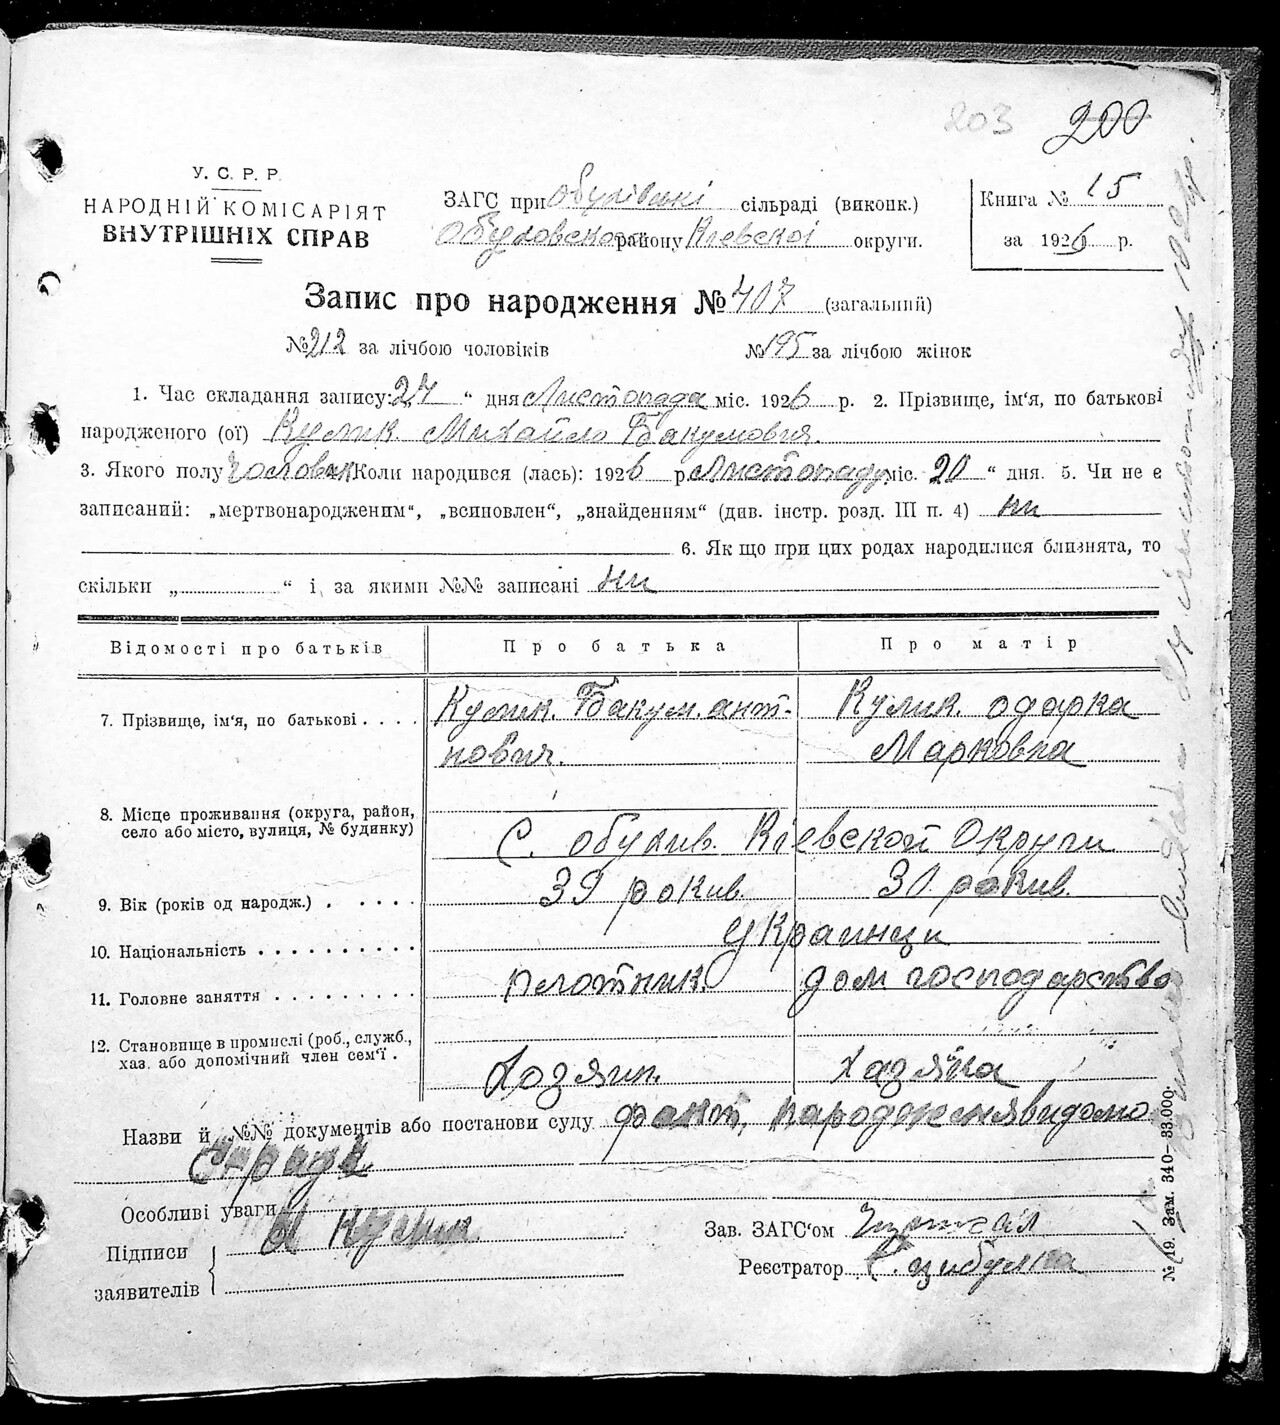 203 200
У. С. Р. Р.
НАРОДНІЙ КОМІСАРІЯТ
ВНУТРІШНІХ СПРАВ
ЗАГС при Обухівські сільраді (виконк.)
Обуховского району Кіевскоі округи.
Книга № 15
за 1926 р.
Запис про народження № 407 (загальний)
№ 212 за лічбою чоловіків № 195 за лічбою жінок
1. Час складання запису: 27 “ дня Листопада міс. 1926 р. 2. Прізвище, ім‘я, по батькові
народженого (ої) Кулик Михайло Бакумович.
3. Якого полу Чоловік Коли народився (лась): 1926 р. Листопаду міс. 20 “ дня. 5. Чи не є
записаний: „мертвонародженим“, „всиновлен“, „знайденням“ (див. інстр. розд. III п. 4) ни
6. Як що при цих родах народилися близнята, то
скільки „ “ і за якими №№ записані ни
Відомості про батьків Про батька Про матір
7. Прізвище, ім‘я, по батькові . . . . Кулик. Бакум. ант- Кулик. одарка
нович. Марковна
8. Місце проживання (округа, район,
село або місто, вулиця, № будинку)
С. обухив. Кіевской Округи
9. Вік (років од народж.) . . . . . 39 рокив. 30. рокив.
10. Національність . . . . . . . . . . украинци
11. Головне заняття . . . . . . . . . плотник. дом господарство
12. Становище в промислі (роб., служб.,
хаз. або допомічний член сем‘ї .
Хозяин. хазяйка
Назви й №№ документів або постанови суду факт, народження видомо
С
Особливі уваги
Підписи
заявителів
Кулик
Зав. ЗАГС‘ом
Реєстратор С. цибулка
№ 19. Зам. 340—33.000.